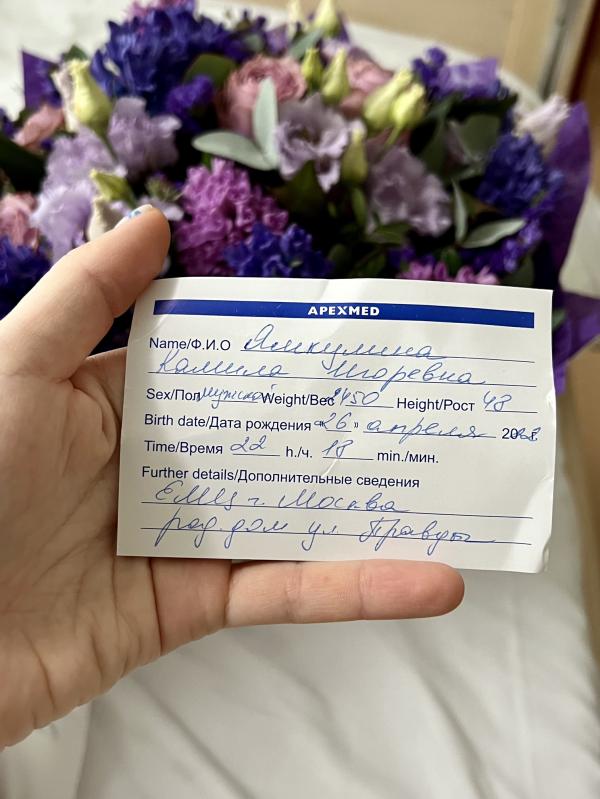 APEXMED
Name/Ф.И.О Ямкулина
Камила Игоревна
Sex/Пол мужской Weight/Вес 2450 Height/Рост 48
Birth date/Дата рождения «26» апреля 202
Time/Время 22 h./ч. 18 min./мин.
Further details/Дополнительные сведения
ЕМЦ г. Москва
род. дом ул. Правды